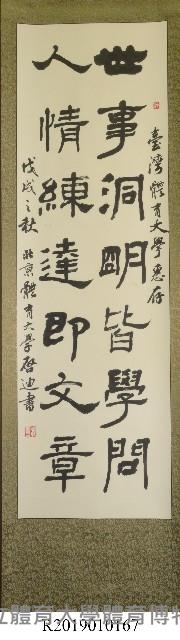 臺灣體育大學惠存
世事洞明皆學問
人情練達即文章
戊戌之秋 北京體育大學啓迪書
立體育大學體育博物
R2019010167